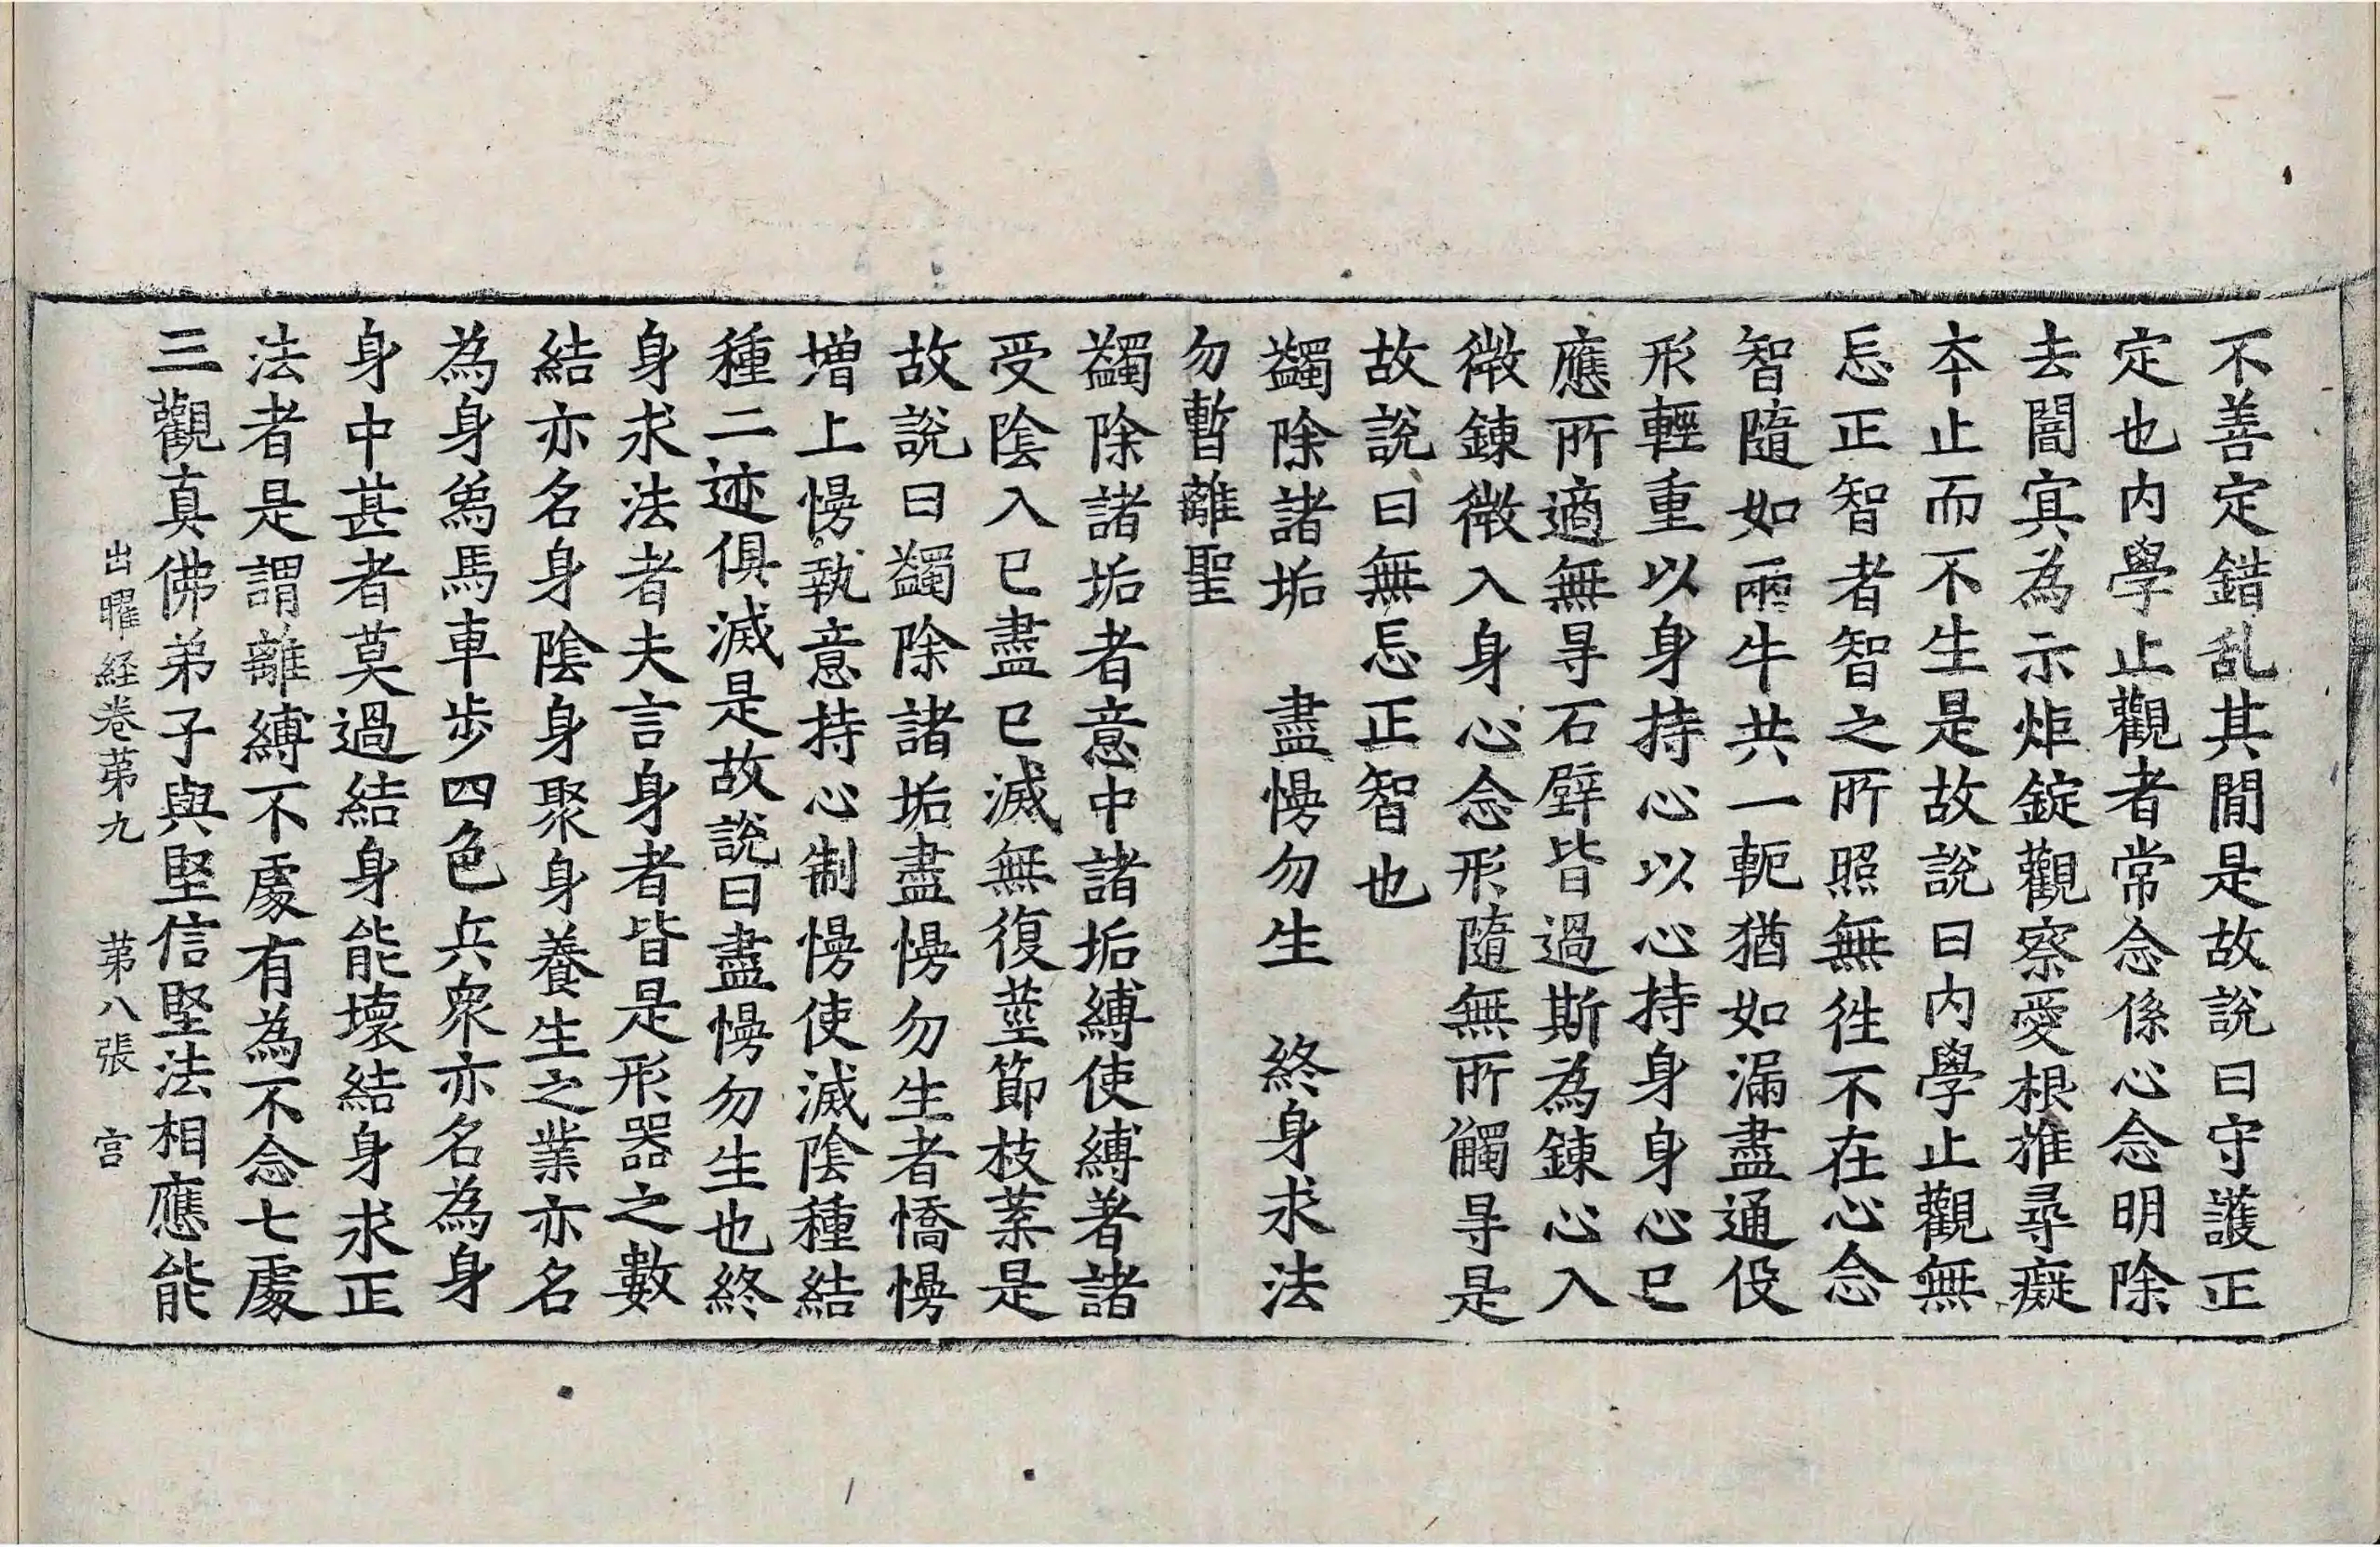 不善定錯乱其閒是故說曰守護正
定也内學止觀者常念係心念明除
去闇㝠為示炬錠觀察愛根推尋癡
夲止而不生是故說曰内學止觀無
忘正智者智之所照無徃不在心念
智隨如兩牛共一軛猶如漏盡通伇
形輕重以身持心以心持身身心已
應所適無㝵石壁皆過斯為鍊心入
微鍊微入身心念形隨無所觸㝵是
故說曰無忘正智也
蠲除諸垢　盡慢勿生　終身求法
勿暫離聖
蠲除諸垢者意中諸垢縛使縛著諸
受陰入已盡已滅無復莖節枝葉是
故說曰蠲除諸垢盡慢勿生者憍慢
增上慢執意持心制慢使滅陰種結
種二迹俱滅是故說曰盡慢勿生也終
身求法者夫言身者皆是形器之數
結亦名身陰身聚身養生之業亦名
為身為馬車步四色兵衆亦名為身
身中甚者莫過結身能壞結身求正
法者是謂離縛不處有為不念七處
三觀真佛弟子與堅信堅法相應能
出曜経卷苐九　苐八張　宫